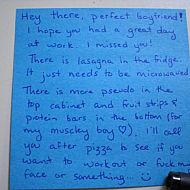 Hey there, perfect boyfriend!
I hope you had a great day
at work. I missed you!
There is lasagna in the fridge.
It just needs to be microwaved
There is more pseudo in the
top cabinet and fruit strips &
protein bars in the bottom (for
my muscley boy ♡). I'll call
you after pizza to see if you
want to workout or fuck my
face or something...